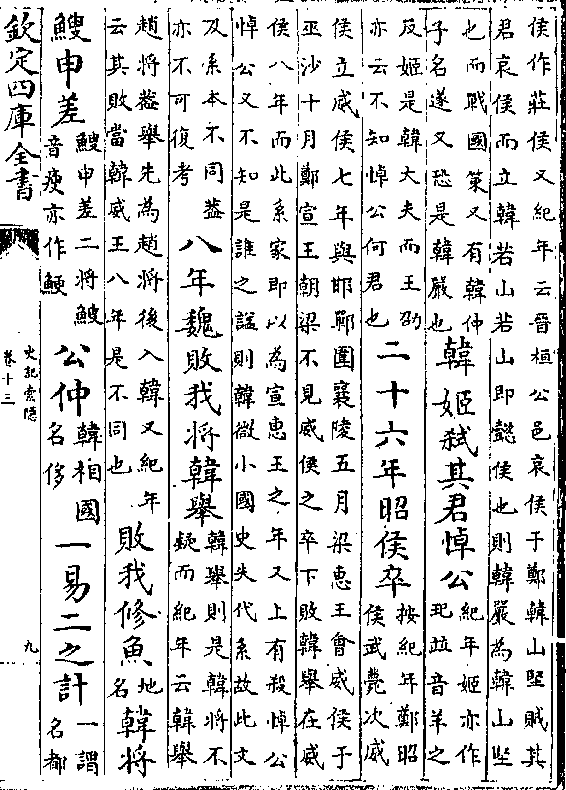 侯作莊侯又紀年云晉桓公邑哀侯于鄭韓山堅賊其
君哀侯而立韓若山若山即懿侯也則韓嚴為韓山堅
也而戰國策又有韓仲
子名遂又恐是韓嚴也
韓姬弒其君悼公
紀年姬亦作
玘竝音羊之
反姬是韓大夫而王劭
亦云不知悼公何君也
二十六年昭侯卒
按紀年鄭昭
侯武薨次威
侯立威侯七年與邯鄲圍襄陵五月梁惠王會威侯于
巫沙十月鄭宣王朝梁不見威侯之卒下敗韓舉在威
侯八年而此系家即以為宣惠王之年又上有殺悼公
悼公又不知是誰之諡則韓微小國史失代系故此文
及系本不同葢
亦不可復考
八年魏敗我將韓舉
韓舉則是韓將不
疑而紀年云韓舉
趙將葢舉先為趙將後入韓又紀年
云其敗當韓威王八年是不同也
敗我修魚
地
名
韓將
䱸申差
䱸申差二將䱸
音瘦亦作鯁
公仲
韓相國
名侈
一易二之計
一謂
名都
欽定四庫全書
史記索隱
卷十三
九